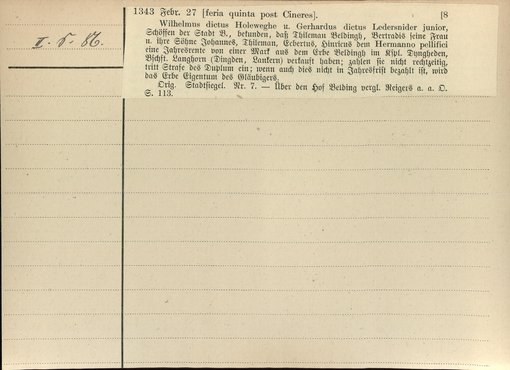 1343 Febr. 27 [feria quinta post Cineres]. [8
Wilhelmus dictus Holeweghe u. Gerhardus dictus Ledersnider junior,
Schöffen der Stadt B., bekunden, daß Thileman Beldingh, Bertradis seine Frau
u. ihre Söhne Johannes, Thileman, Ecbertus, Hinricus dem Hermanno pellifici
eine Jahresrente von einer Mark aus dem Erbe Beldingh im Kspl. Dyngheden,
Bschft. Langhorn (Dingden, Lankern) verkauft haben; zahlen sie nicht rechtzeitig,
tritt Strafe des Duplum ein; wenn auch dies nicht in Jahresfrist bezahlt ist, wird
das Erbe Eigentum des Gläubigers.
Orig. Stadtsiegel. Nr. 7. — Über den Hof Belding vergl. Reigers a. a. O.
S. 113.
II.